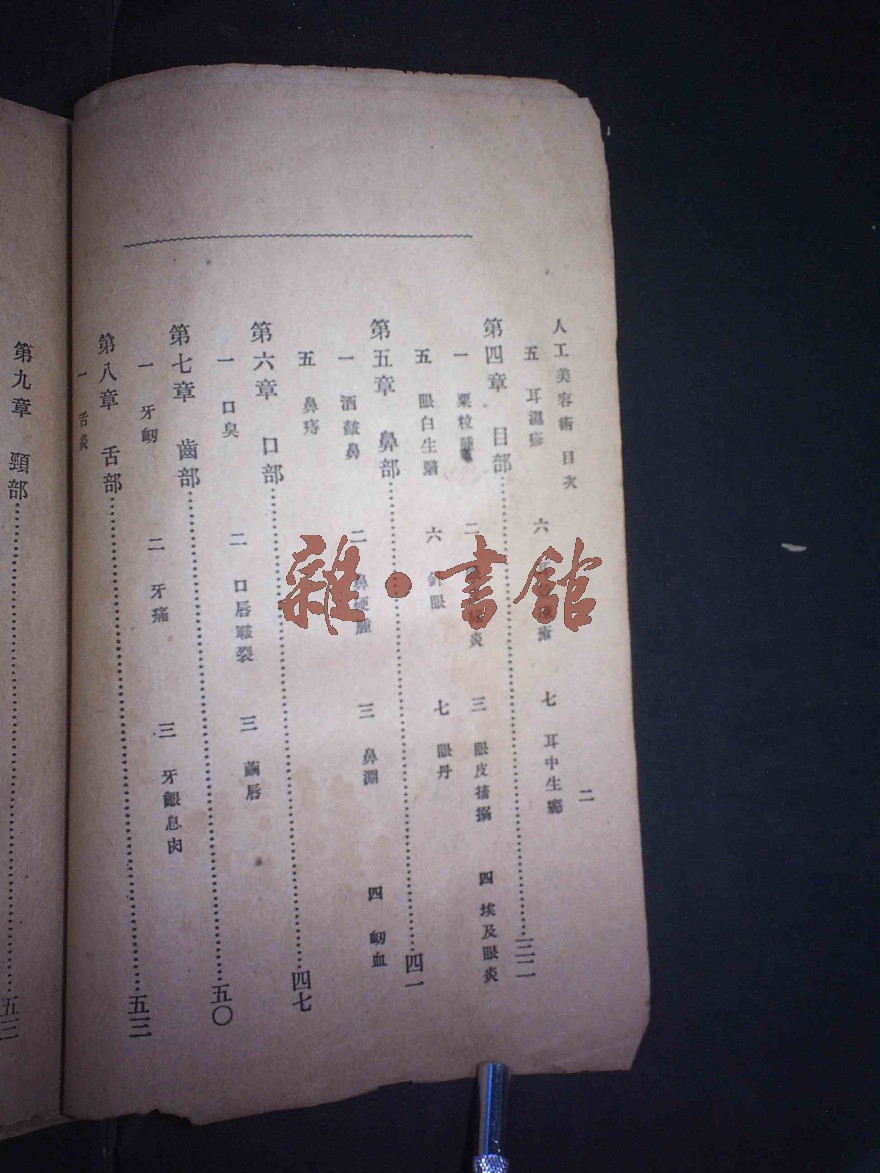 人工美容術 目次
二
五 耳濕疹
六
七 耳中生瘤
第四章 目部 三二
一 粟粒
二 炎
三 眼皮搐搦
四 埃及眼炎
五 眼白生翳
六 針眼
七 眼丹
第五章 鼻部 四一
一 酒皶鼻
二 鼻硬腫
三 鼻淵
四 衂血
五 鼻痔
第六章 口部 四七
一 口臭
二 口唇皸裂
三 繭唇
第七章 齒部 五〇
一 牙衂
二 牙痛
三 牙齦息肉
第八章 舌部 五三
一 舌炎
第九章 頸部
雜·書館